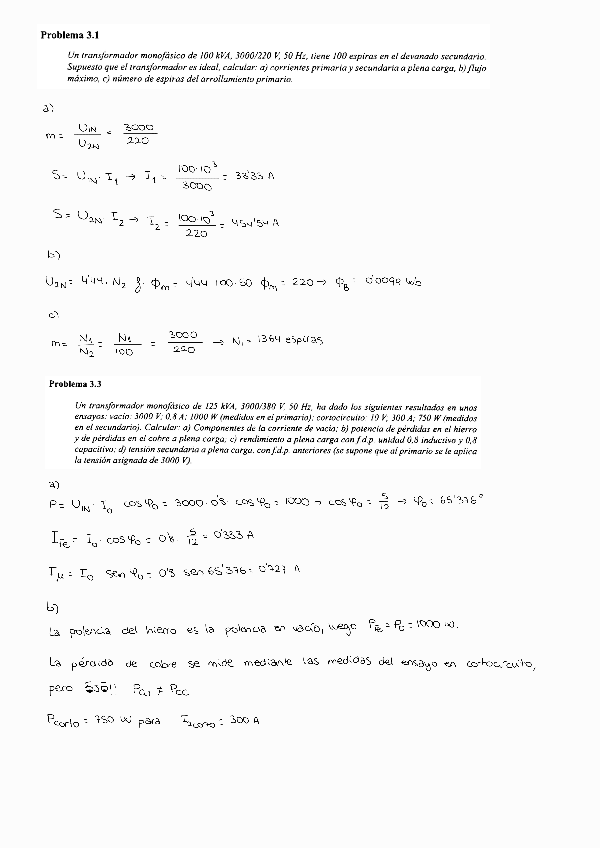 Problema 3.1
Un transformador monofásico de 100 kVA, 3000/220 V, 50 Hz, tiene 100 espiras en el devanado secundario.
Supuesto que el transformador es ideal, calcular: a) corrientes primaria y secundaria a plena carga, b) flujo
máximo, c) número de espiras del arrollamiento primario.
a)
m = U1N / U2N = 3000 / 220
S = U1N · I1 → I1 = 100·10³ / 3000 = 33'33 A
S = U2N I2 → I2 = 100·10³ / 220 = 454'54 A
b)
U2N = 4'44 · N2 f · Φm = 4'44 · 100 · 50 Φm = 220 → = 0'0099 Wb
c)
m = N1 / N2 = N1 / 100 = 3000 / 220 → N1 = 1364 espiras
Problema 3.3
Un transformador monofásico de 125 kVA, 3000/380 V, 50 Hz, ha dado los siguientes resultados en unos
ensayos: vacío: 3000 V; 0,8 A; 1000 W (medidos en el primario); cortocircuito: 10 V; 300 A; 750 W (medidos
en el secundario). Calcular: a) Componentes de la corriente de vacío; b) potencia de pérdidas en el hierro
y de pérdidas en el cobre a plena carga; c) rendimiento a plena carga con f.d.p. unidad 0,8 inductivo y 0,8
capacitivo; d) tensión secundaria a plena carga, con f.d.p. anteriores (se supone que al primario se le aplica
la tensión asignada de 3000 V).
a)
P = U1N · I0 cos φ0 = 3000 · 0'8 · cos φ0 = 1000 → cos φ0 = 5/12 → φ0 = 65'376°
IFe = I0 · cos φ0 = 0'8 · 5/12 = 0'333 A
Iμ = I0 sen φ0 = 0'8 sen 65'376 = 0'727 A
b)
La potencia del hierro es la potencia en vacío, luego PFe = P0 = 1000 W.
La pérdida de cobre se mide mediante las medidas del ensayo en cortocircuito,
pero ≠ Pcc
Pcorto = 750 W para I2corto = 300 A